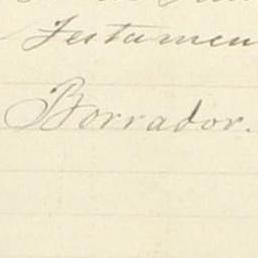 Testamen
Borrador.